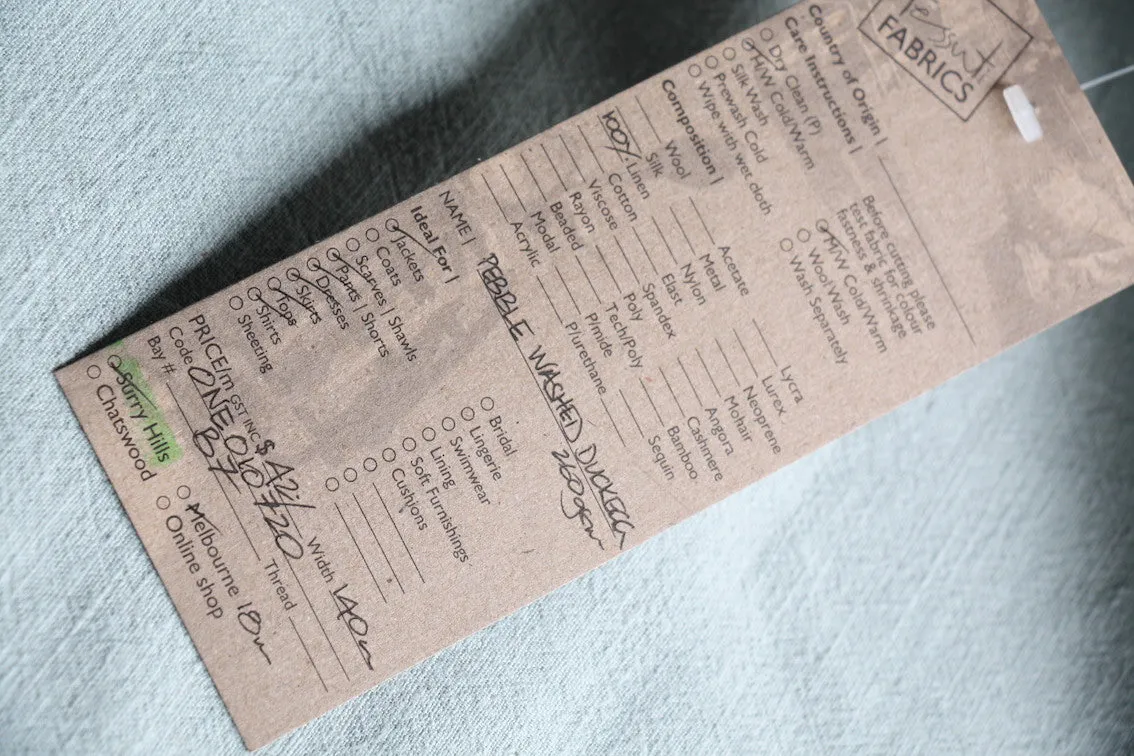 Tessuti
FABRICS
Country of Origin |
Care Instructions |
Dry Clean (P)
H/W Cold/Warm
Silk Wash
Prewash Cold
Wipe with wet cloth
Before cutting please
test fabric for colour
fastness & shrinkage
M/W Cold/Warm
Wool Wash
Wash Separately
Composition |
Wool
Silk
100% Linen
Cotton
Viscose
Rayon
Beaded
Modal
Acrylic
Acetate
Metal
Nylon
Elast
Spandex
Poly
Tech/Poly
P/mide
P/urethane
Lycra
Lurex
Neoprene
Mohair
Angora
Cashmere
Bamboo
Sequin
NAME | PEBBLE WASHED DUCKEGG
260gsm
Ideal For |
Jackets
Coats
Scarves | Shawls
Pants | Shorts
Dresses
Skirts
Tops
Shirts
Sheeting
Bridal
Lingerie
Swimwear
Lining
Soft Furnishings
Cushions
PRICE/m GST INC $ Width 140cm
Code ONE OKO 720 Thread
Bay # B7
Surry Hills
Chatswood
Melbourne 18m
Online shop